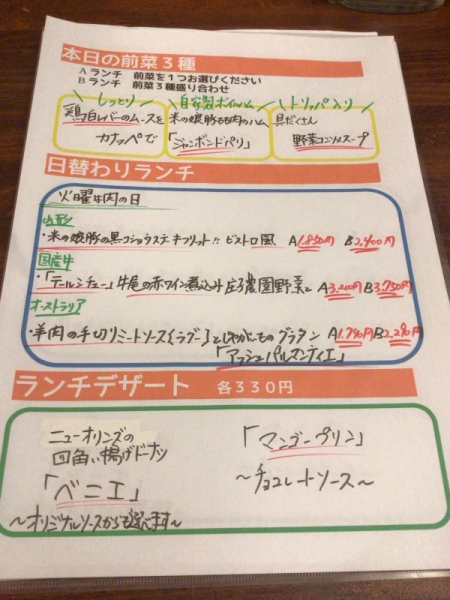 本日の前菜3種
Aランチ 前菜を1つお選びください
Bランチ 前菜3種盛り合わせ
しっとり 自家製ボイルハム トリッパ入り
鶏白レバーのムースを 米の娘豚もも肉のハム 具だくさん
カナッペで 「ジャンボンドパリ」 野菜コンソメスープ
日替わりランチ
火曜牛肉の日
山形
・米の娘豚の黒コショウステキフリット!! ビストロ風 A1,850円 B2,400円
国産牛
・「テールシチュー」牛尾の赤ワイン煮込み 庄内農園野菜と A3,200円 B3,750円
オーストラリア
・羊肉の手切りミートソース{ラグー}とじゃがいもの グラタン A1,740円 B2,290円
「アッシュパルマンティエ」
ランチデザート 各330円
ニューオリンズの
四角い揚げドーナツ
「ベニエ」
〜オリジナルソースからも選べます〜
「マンゴープリン」
〜チョコレートソース〜